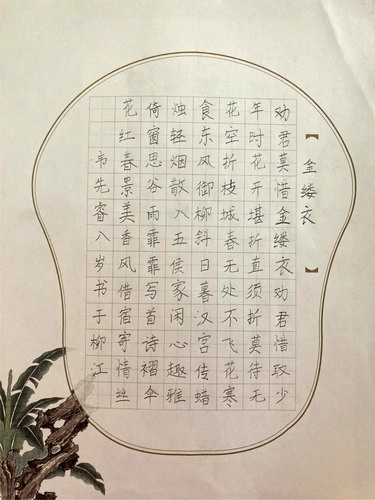 【金缕衣】
劝君莫惜金缕衣劝君惜取少
年时花开堪折直须折莫待无
花空折枝城春无处不飞花寒
食东风御柳斜日暮汉宫传蜡
烛轻烟散入五侯家闲心趣雅
倚窗思谷雨霏霏写首诗褶伞
花红春景美香风借宿寄情丝
韦先睿八岁书于柳江